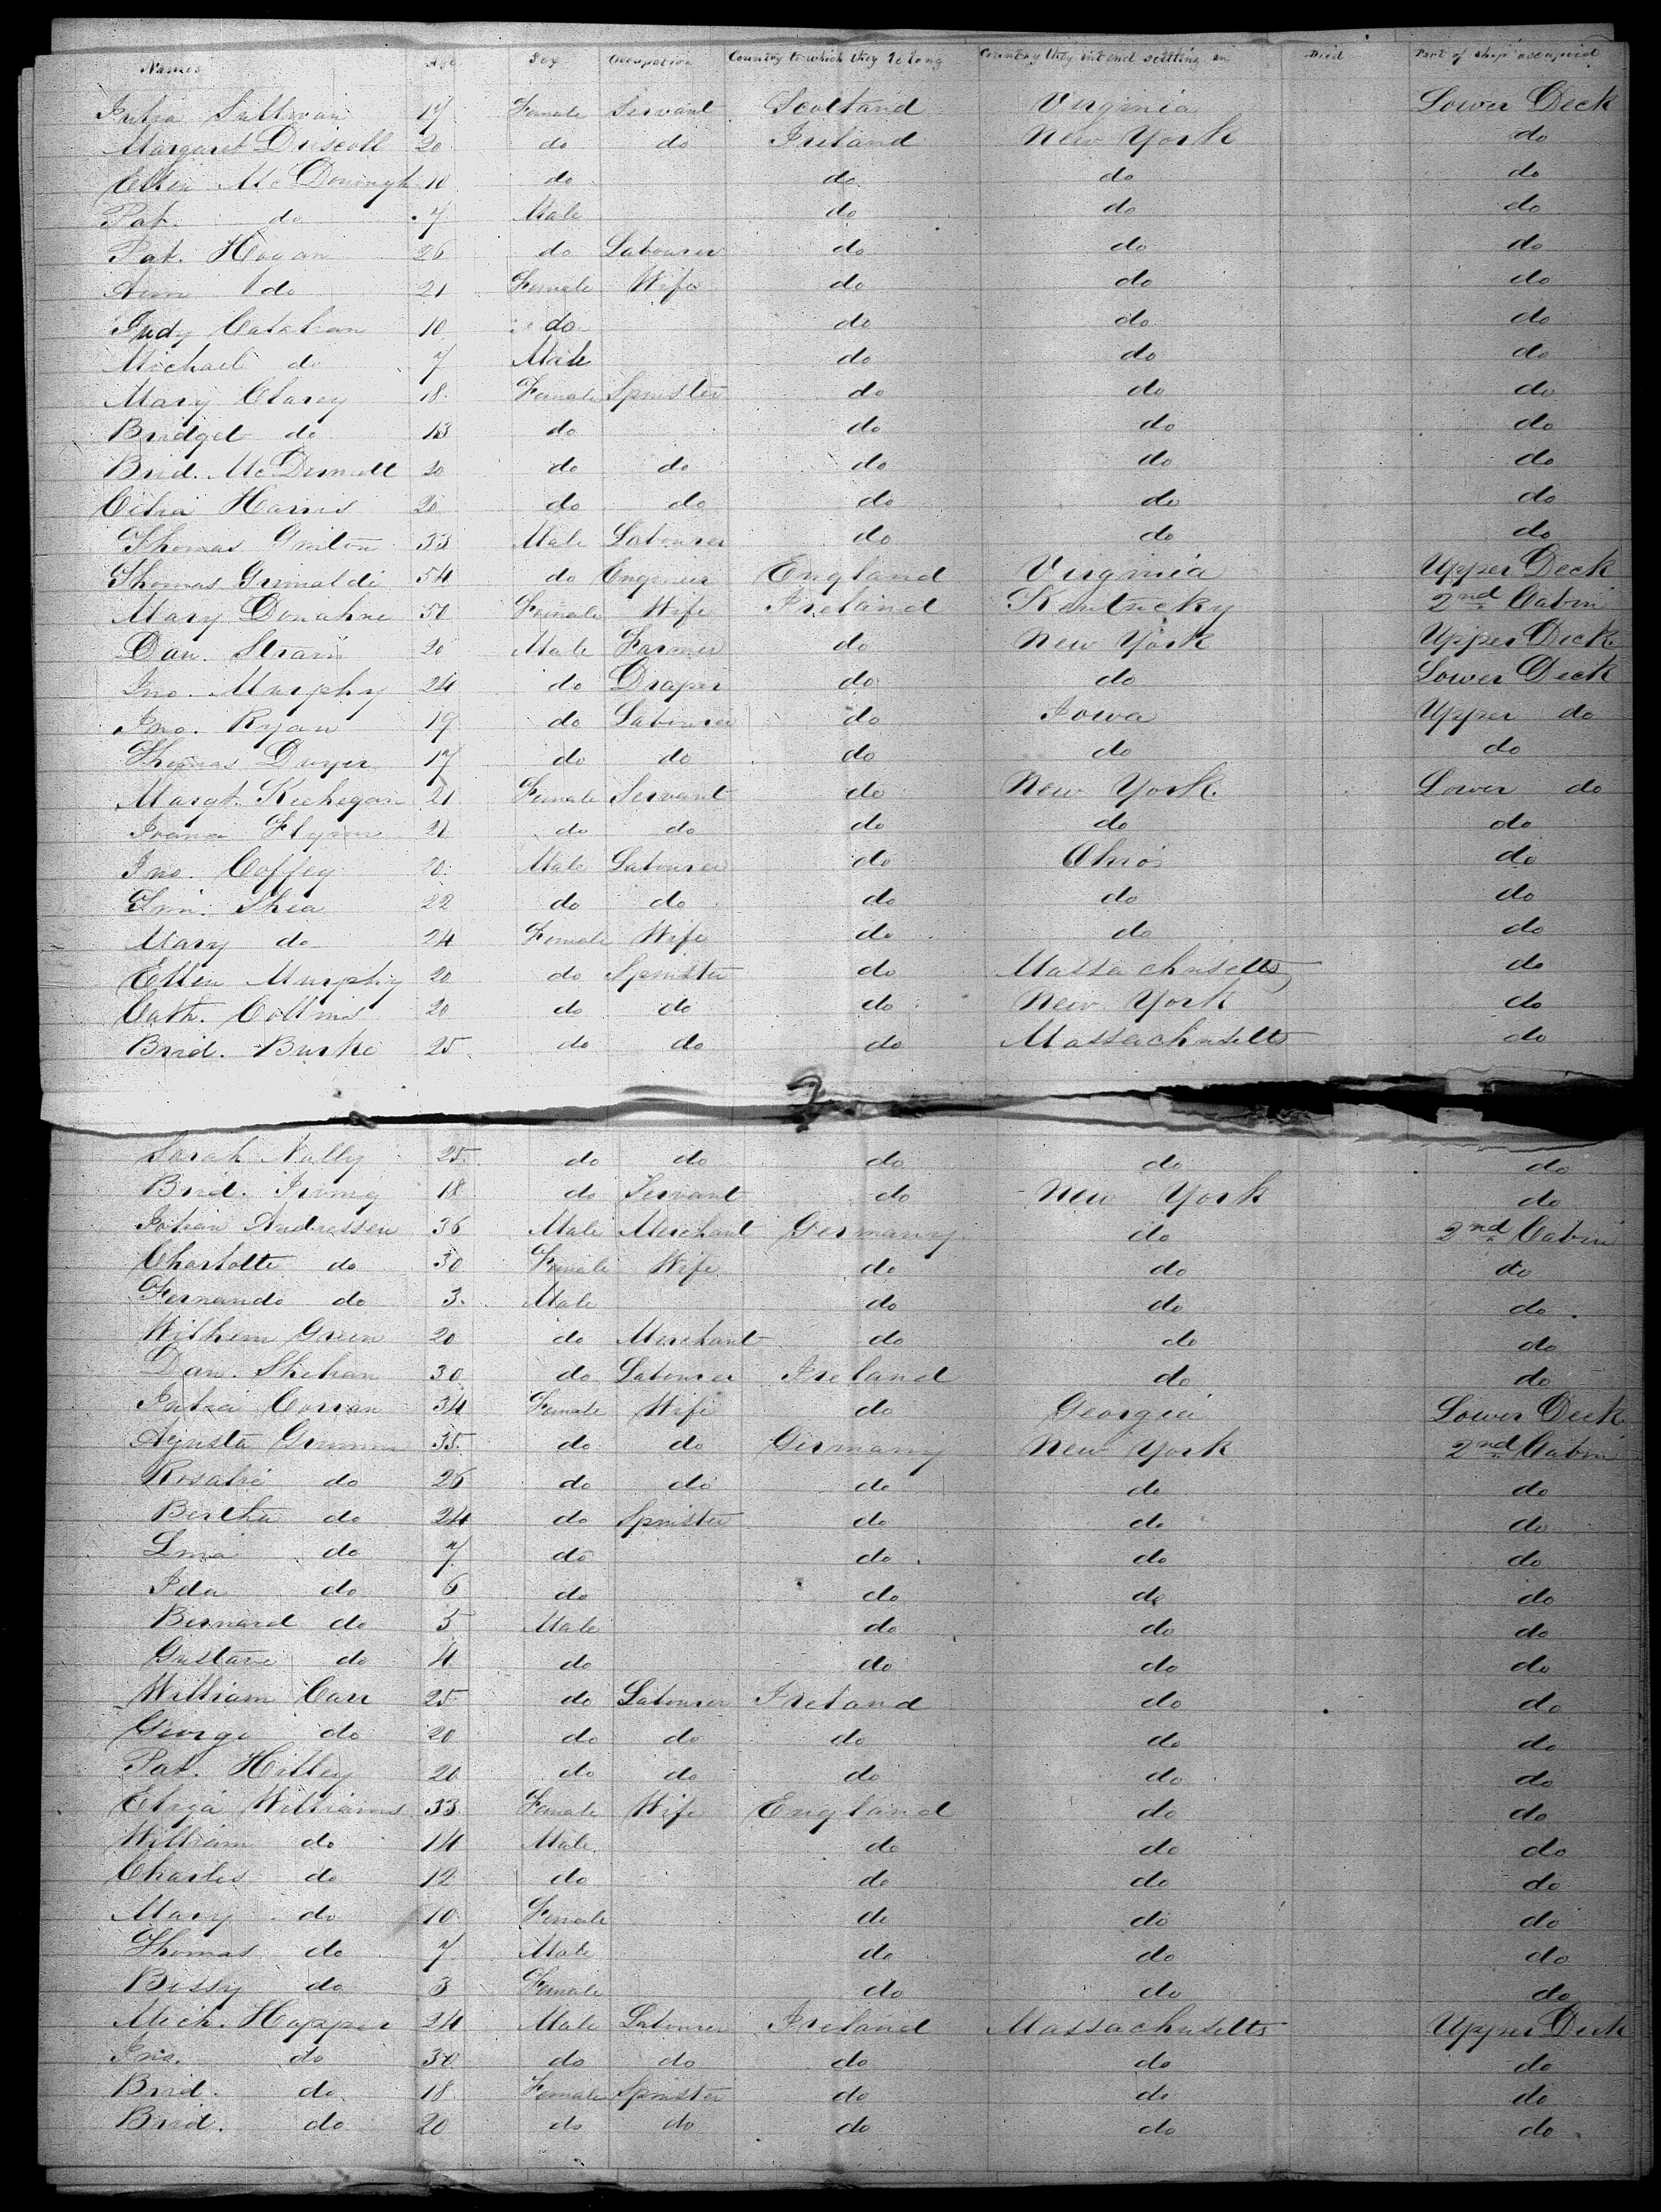 Names Age Sex Occupation Country to which they belong Country they intend settling in Died Part of ship occupied
Julia Sullivan 17 Female Servant Scotland Virginia Lower Deck
Margaret Driscoll 20 do do Ireland New York do
Ellen McDonough 10 do do do do
Pat. do 7 Male do do do
Pat. Hogan 26 do Labourer do do do
Ann do 21 Female Wife do do do
Judy Calahan 10 do do do do
Michael do 7 Male do do do
Mary Clarey 18 Female Spinster do do do
Bridget do 13 do do do do
Brid. McDermott 20 do do do do do
Harris 20 do do do do do
Thomas 33 Male Labourer do do do
Thomas Grimaldi 54 do Engineer England Virginia Upper Deck
Mary Donahue 51 Female Wife Ireland Kentucky 2nd Cabin
Dan. Strain 20 Male Farmer do New York Upper Deck
Jno. Murphy 24 do Draper do do Lower Deck
Jno. Ryan 19 do Labourer do Iowa Upper do
Thomas Dwyer 17 do do do do do
Margt. Keehegan 21 Female Servant do New York Lower do
Flynn 21 do do do do do
Jno. Coffey 20 Male Labourer do Ohio do
Tim. Shea 22 do do do do do
Mary do 24 Female Wife do do do
Ellen Murphy 20 do Spinster do Massachusetts do
Cath. Collins 20 do do do New York do
Brid. Burke 25 do do do Massachusetts do
2
Sarah Nally 25 do do do do do
Brid. Irving 18 do Servant do New York do
Andressen 36 Male Merchant Germany do 2nd Cabin
Charlotte do 30 Female Wife do do do
Fernando do 3 Male do do do
Wilhem Green 20 do Merchant do do do
Dan. Shehan 30 do Labourer Ireland do do
Julia Corran 34 Female Wife do Georgia Lower Deck
Agusta Grumm 35 do do Germany New York 2nd Cabin
Rosalie do 26 do do do do do
Bertha do 24 do Spinster do do do
Lina do 7 do do do do
Ida do 6 do do do do
Bernard do 5 Male do do do
Gustave do 4 do do do do
William Carr 25 do Labourer Ireland do do
George do 20 do do do do do
Pat. Hilley 20 do do do do do
Eliza Williams 33 Female Wife England do do
William do 14 Male do do do
Charles do 12 do do do do
Mary do 10 Female do do do
Thomas do 7 Male do do do
Bessy do 3 Female do do do
Mich. Hopper 24 Male Labourer Ireland Massachusetts Upper Deck
Jno. do 30 do do do do do
Brid. do 18 Female Spinster do do do
Brid. do 20 do do do do do